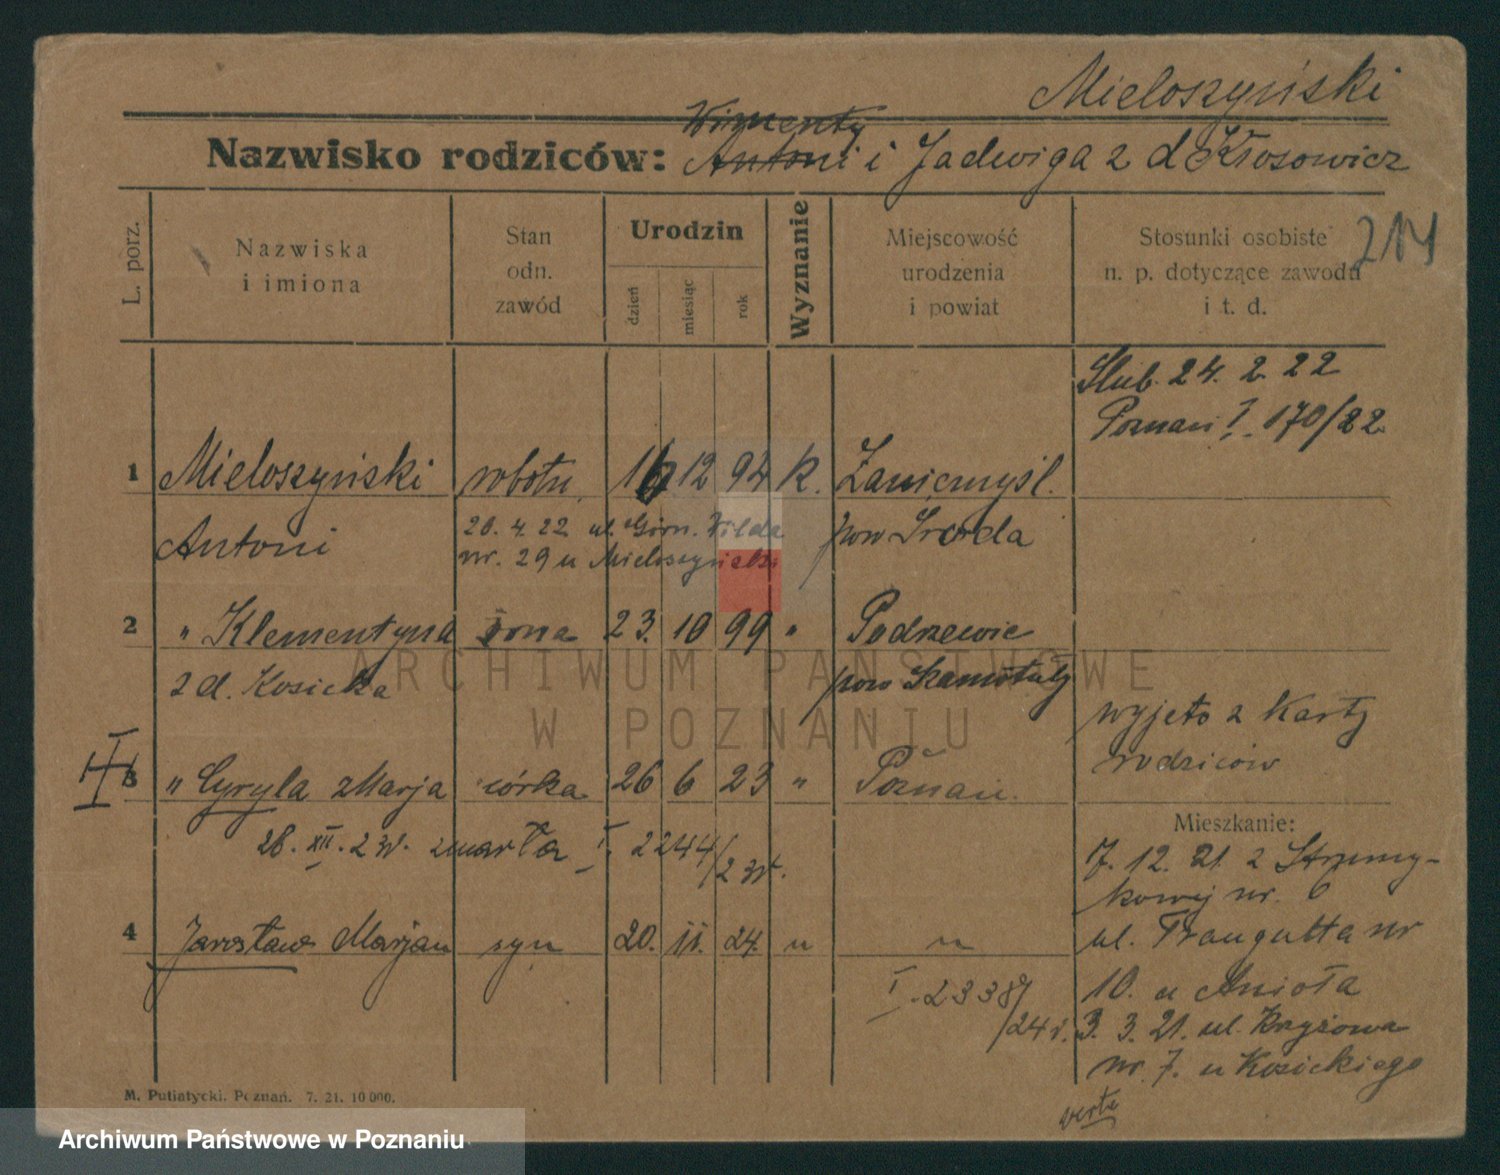 Mieloszyński
Nazwisko rodziców: Antoni i Jadwiga z d Kłosowicz
214
L. porz.
Nazwiska i imiona
Stan odn. zawód
Urodzin
dzień
miesiąc
rok
Wyznanie
Miejscowość urodzenia i powiat
Stosunki osobiste n. p. dotyczące zawodu i t. d.
Ślub. 24. 2. 22
Poznań I. 170/22
1 Mieloszyński robotn. 16 12 94 k. Zaniemyśl.
Antoni 20. 4. 22 ul. Górn. Wilda pow Środa
nr. 29 u Mieloszyński
2 " Klementyna żona 23. 10 99 " Podrzewie
z d. Kosicka pow Szamotuły
wyjęto z Karty
rodziców
III
3 " Cyryla Marja córka 26 6 23 " Poznań.
Mieszkanie:
28. XII. 24. zmarła I. 2244/24.
7. 12. 21. z Strumy-
kowej nr. 6
4 Jarosław Marjan syn 20. 11. 24. " "
ul. Traugutta nr
10. u Anioła
I. 2338/24 r.
3. 3. 21. ul. Krzyżowa
nr. 7. u Kosickiego
verte
M. Putiatycki. Poznań. 7. 21. 10 000.
ARCHIWUM PAŃSTWOWE
W POZNANIU
Archiwum Państwowe w Poznaniu